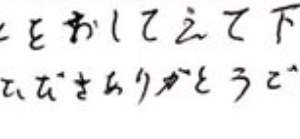 とをおしてえて下
ただきありがとうご